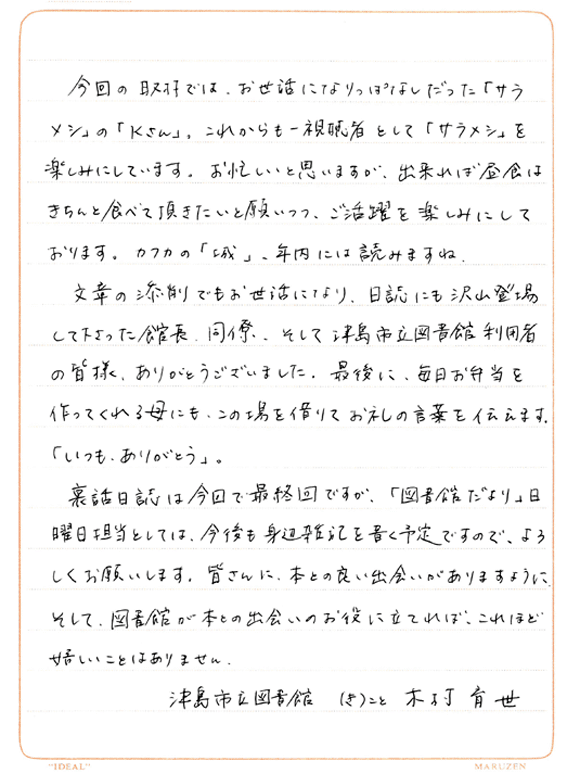 今回の取材では、お世話になりっぱなしだった「サラ
メシ」の「Kさん」。これからも一視聴者として「サラメシ」を
楽しみにしています。お忙しいと思いますが、出来れば昼食は
きちんと食べて頂きたいと願いつつ、ご活躍を楽しみにして
おります。カフカの「城」、年内には読みますね。
文章の添削でもお世話になり、日誌にも沢山登場
して下さった館長、同僚、そして津島市立図書館利用者
の皆様、ありがとうございました。最後に、毎日お弁当を
作ってくれる母にも、この場を借りてお礼の言葉を伝えます。
「いつも、ありがとう」。
裏話日誌は今回で最終回ですが、「図書館だより」日
曜日担当としては、今後も身辺雑記を書く予定ですので、よろ
しくお願いします。皆さんに、本との良い出会いがありますように。
そして、図書館が本との出会いのお役に立てれば、これほど
嬉しいことはありません。
津島市立図書館 (き)こと 木村 育世
"IDEAL" MARUZEN